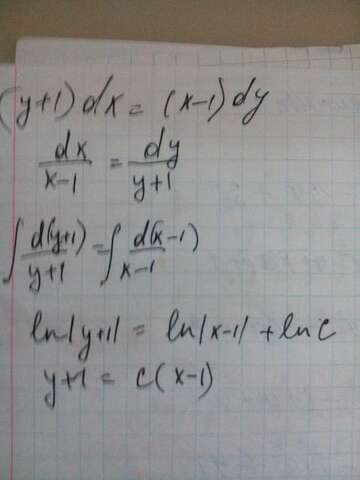 (y+1)dx = (x-1)dy
dx/(x-1) = dy/(y+1)
∫ d(y+1)/(y+1) = ∫ d(x-1)/(x-1)
ln|y+1| = ln|x-1| + ln c
y+1 = c(x-1)